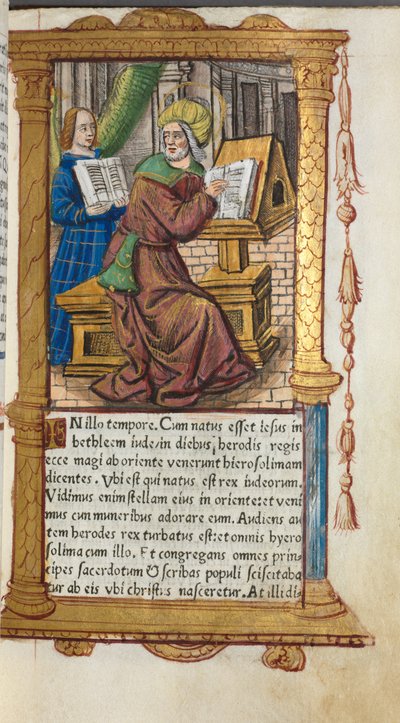 IN illo tempore. Cum natus esset iesus in
bethleem iude in diebus herodis regis
ecce magi ab oriente venerunt hierosolimam
dicentes. Vbi est qui natus est rex iudeorum.
Vidimus enim stellam eius in oriente: et veni
mus cum muneribus adorare eum. Audiens au
tem herodes rex turbatus est: et omnis hyero
solima cum illo. Et congregans omnes prin-
cipes sacerdotum & scribas populi sciscitaba
tur ab eis vbi christus nasceretur. At illi di-